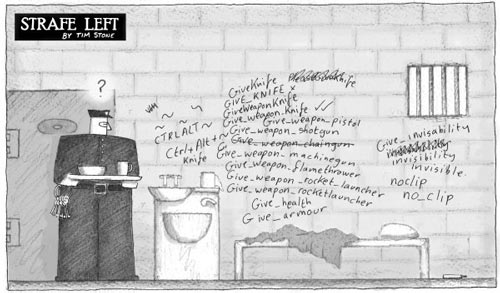 STRAFE LEFT
BY TIM STONE
?
GiveKnife
GIVE_KNIFE x
GiveWeaponKnife
Give_weapon_Knife ✓✓
~ ~ ~
CTRLALT ~
Give_weapon_pistol
Give_weapon_shotgun
Ctrl+Alt+~
Knife
Give_weapon_chaingun
Give_weapon_machinegun
Give_weapon_flamethrower
Give_weapon_rocket_launcher
Give_weapon_rocketlauncher
Give_health
Give_armour
Give_invisability
invisibility
invisible.
noclip
no_clip